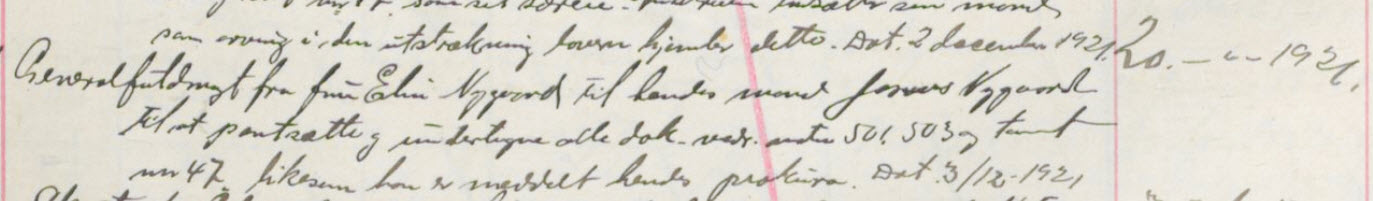 nr 47. som sit særeie. indsætter sin mand
som arving i den utstrækning loven hjemler dette. Dat. 2 december 1921. 20. - " - 1921.
Generalfuldmagt fra fru Elin Nygaard til hendes mand Nygaard
til at pantsætte og undertegne alle dok. vedr. matr 501. 503 og tomt
nr 47. likesom han er meddelt hendes prokura. Dat. 3/12-1921